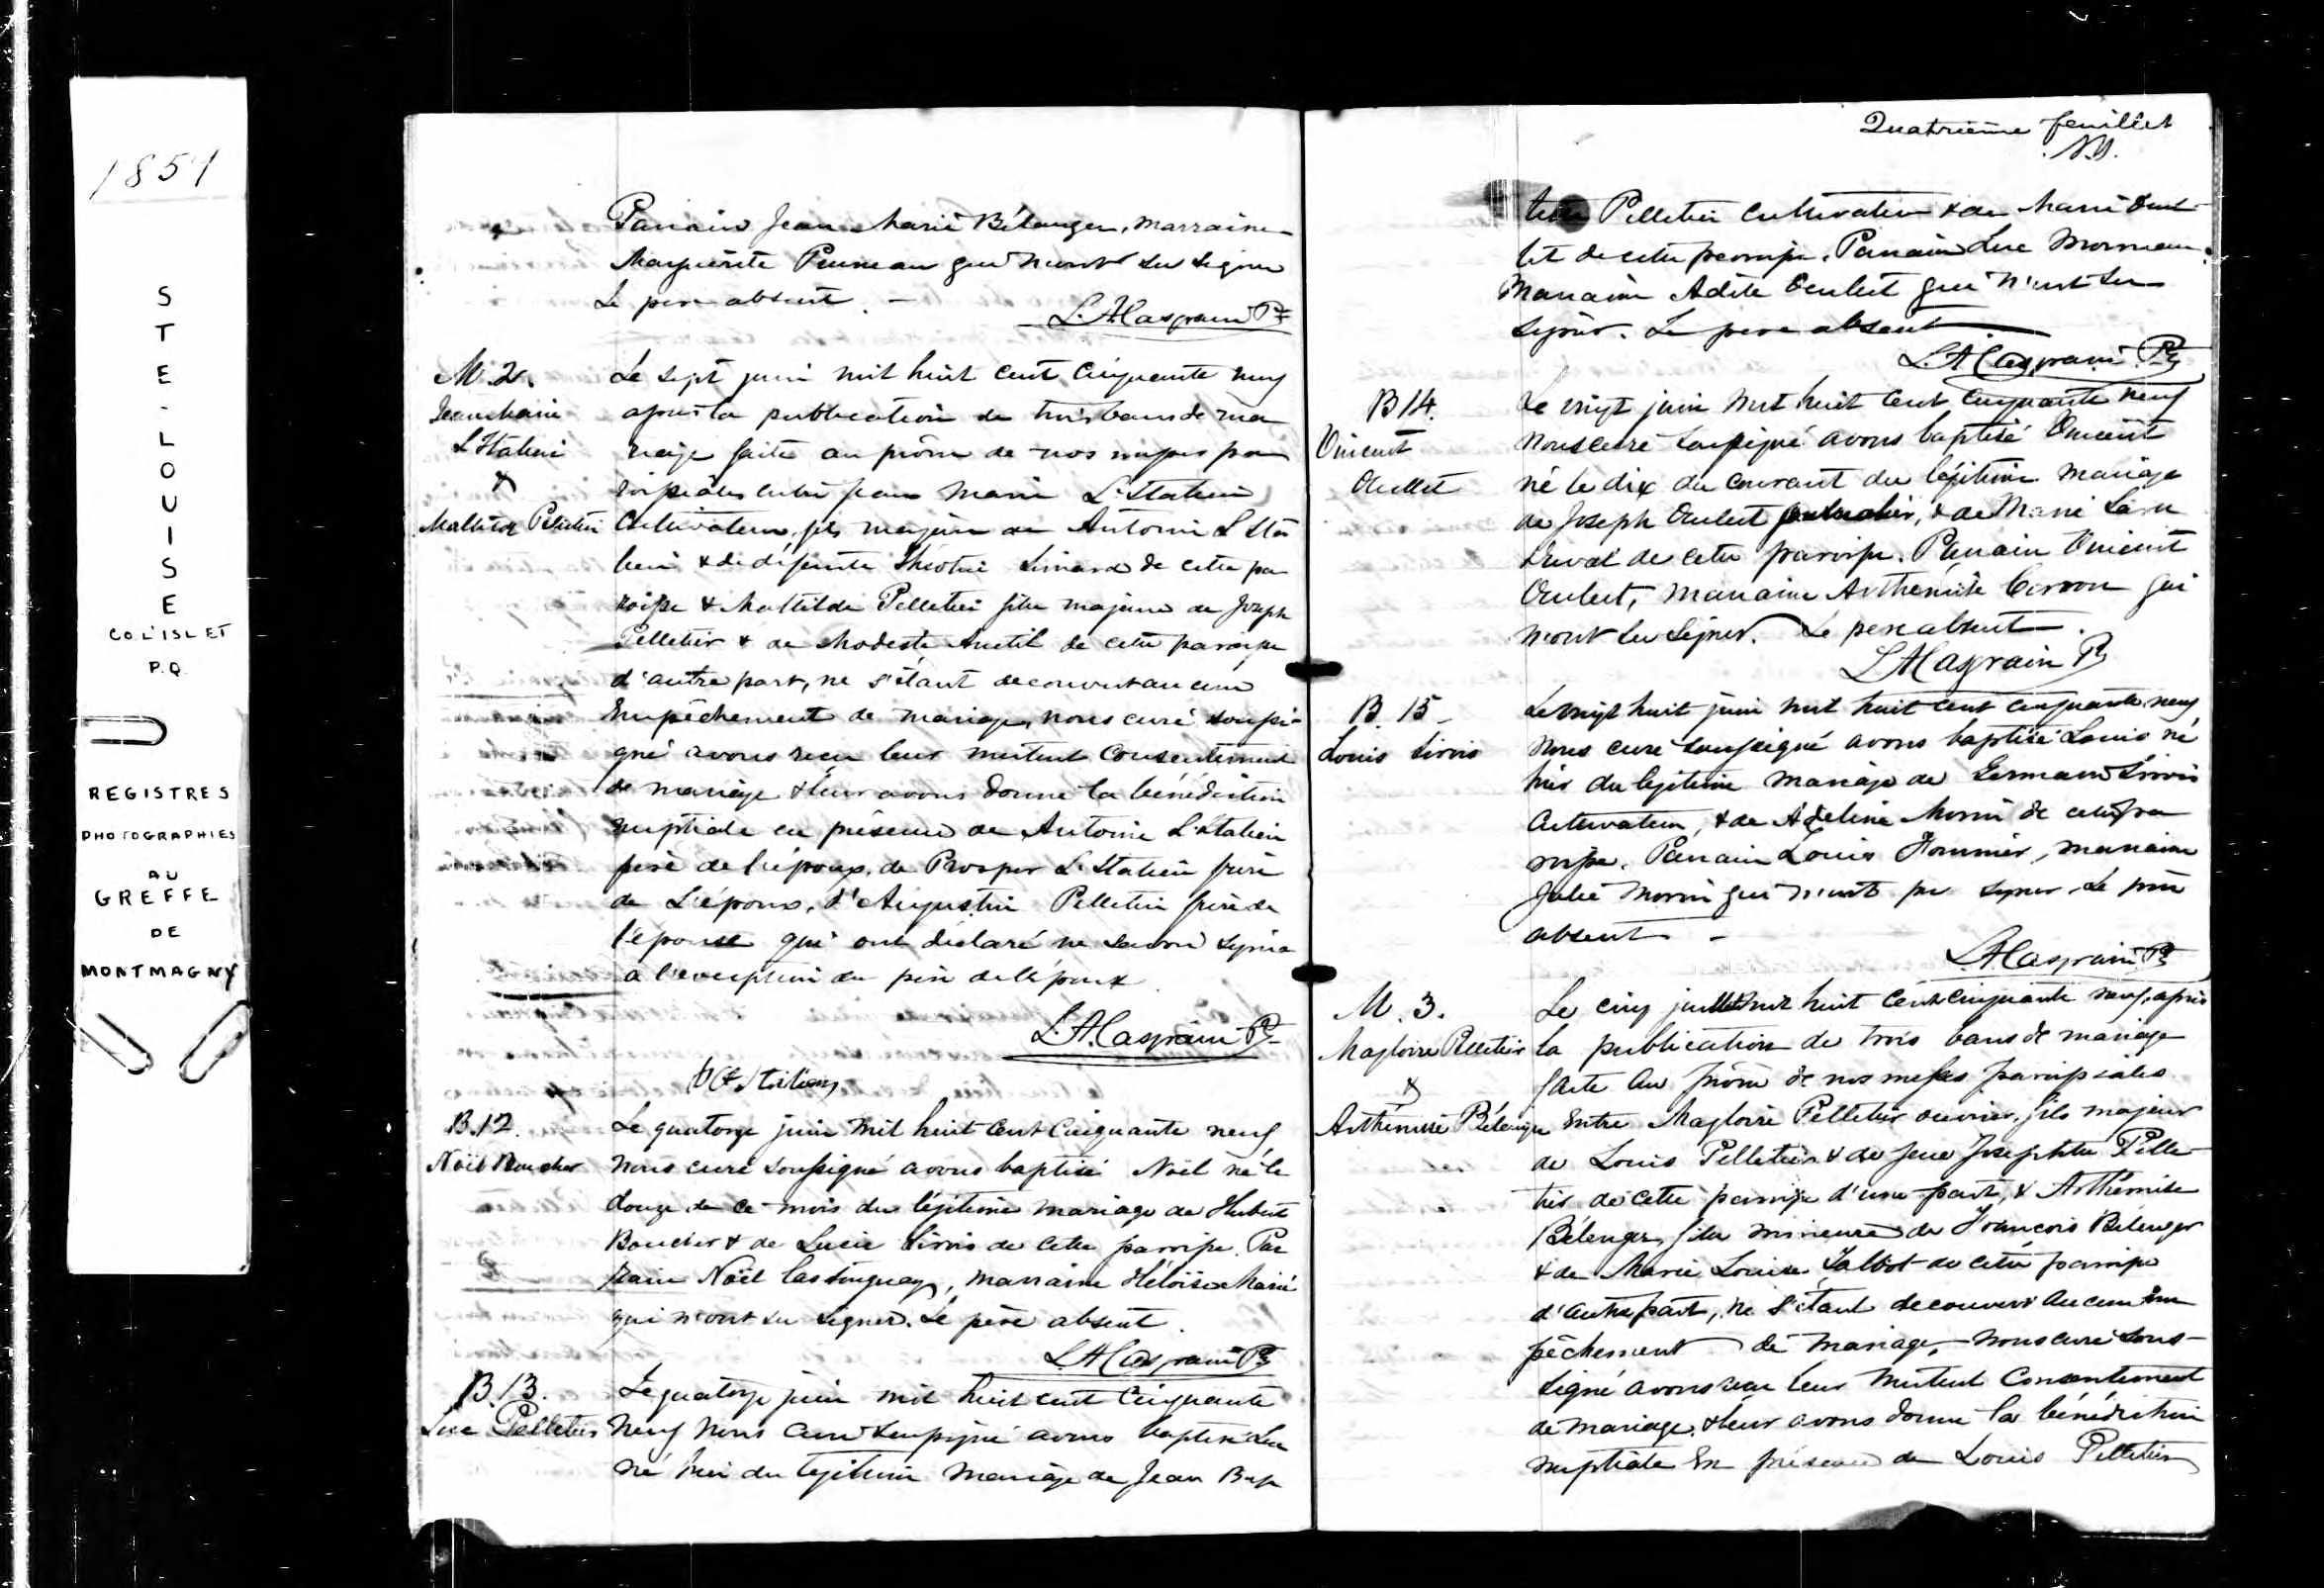 1859
STE-LOUISE
CO. L'ISLET
P.Q.
REGISTRES
PHOTOGRAPHIES
AU
GREFFE
DE
MONTMAGNY
Parrain Jean Marie Bélanger, marraine
Marguerite qui n'ont su signer
Le père absent.
L. A. Casgrain Ptre
M. 2.
Jean Marie
L'Italien
&
Mathilde Pelletier
Le sept juin mil huit cent cinquante neuf
après la publication de trois bans de ma
riage faite au prône de nos messes pa
roissiales entre Jean Marie L'Italien
Cultivateur, fils majeur de Antoine L'Ita
lien & de défunte Théotiste Simard de cette pa
roisse & Mathilde Pelletier fille majeure de Joseph
Pelletier & de Modeste Anctil de cette paroisse
d'autre part, ne s'étant découvert aucun
Empêchement de mariage, nous curé soussi-
gné avons reçu leur mutuel Consentement
de mariage & leur avons donné la bénédiction
nuptiale en présence de Antoine L'Italien
père de l'époux, de Prosper L'Italien frère
de L'époux, d'Augustin Pelletier frère de
l'épouse qui ont déclaré ne savoir signer
à l'exception du père de l'époux.
L. A. Casgrain Ptre
B. 12.
Noël Boucher
Le quatorze juin mil huit cent cinquante neuf
nous curé soussigné avons baptisé Noël né le
douze de ce mois du légitime mariage de Hubert
Boucher & de Lucie Sirois de cette paroisse. Par
rain Noël Castonguay, marraine Héloïse Marie
qui n'ont su signer. Le père absent.
L. A. Casgrain Ptre
B. 13.
Luc Pelletier
Le quatorze juin mil huit cent cinquante
neuf nous curé soussigné avons baptisé Luc
né hier du légitime mariage de Jean Bap
Quatrième feuillet
tiste Pelletier cultivateur & de Marie Ouel
let de cette paroisse. Parrain Luc Morneau
Marraine Adèle Ouellet qui n'ont su
signer. Le père absent
L. A. Casgrain Ptre
B 14.
Vincent
Ouellet
Le vingt juin mil huit cent cinquante neuf
nous curé soussigné avons baptisé Vincent
né le dix du courant du légitime mariage
de Joseph Ouellet journalier, & de Marie
Duval de cette paroisse. Parrain Vincent
Ouellet, marraine Arthémise Caron qui
n'ont su signer. Le père absent.
L A Casgrain Ptre
B. 15
Louis Sirois
Le vingt huit juin mil huit cent cinquante neuf
nous curé soussigné avons baptisé Louis né
hier du légitime mariage de Germain Sirois
Cultivateur, & de Adeline Morin de cette pa
roisse. Parrain Louis, marraine
Julie Morin qui n'ont pu signer. Le père
absent
L. A. Casgrain Ptre
M. 3.
Magloire Pelletier
&
Arthémise Bélanger
Le cinq juillet mil huit cent cinquante neuf, après
la publication de trois bans de mariage
faite au prône de nos messes paroissiales
entre Magloire Pelletier ouvrier, fils majeur
de Louis Pelletier & de feue Josephte Pelle
tier de cette paroisse d'une part, & Arthémise
Bélanger, fille mineure de François Bélanger
& de Marie Louise Talbot de cette paroisse
d'autre part, ne s'étant découvert aucun em
pêchement de mariage, nous curé sous-
signé avons reçu leur mutuel Consentement
de mariage, & leur avons donné la bénédiction
nuptiale En présence de Louis Pelletier